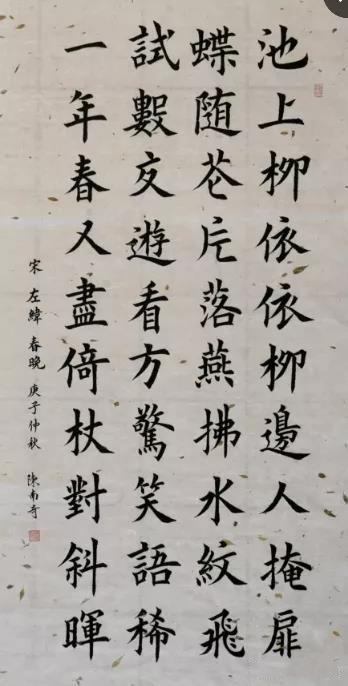 池上柳依依柳邊人掩扉
蝶随花片落燕拂水紋飛
試數交遊看方驚笑語稀
一年春又盡倚杖對斜暉
宋 左緯 春晚 庚子仲秋 陳南奇